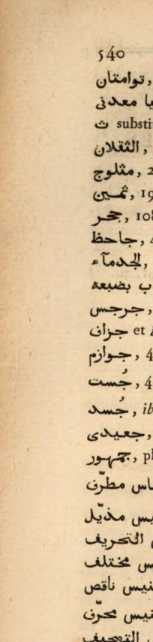 540
توامتان,
يا معدنى
ث substi
الثقلان,
مثلوج, 2
ثمين, 19
جحر, 108
جاحظ, 4
الجدماء,
ب بضبعه
جرجس,
جزان et
جوازم, 4
جُست, 4
جُسد, ib
جعيدى,
جمهور, pl
ـاس مطرّف
ـيس مذيّل
ـ التحريف
ـس مختلف
ـنيس ناقص
ـنيس محرّف
ـ التصحيف